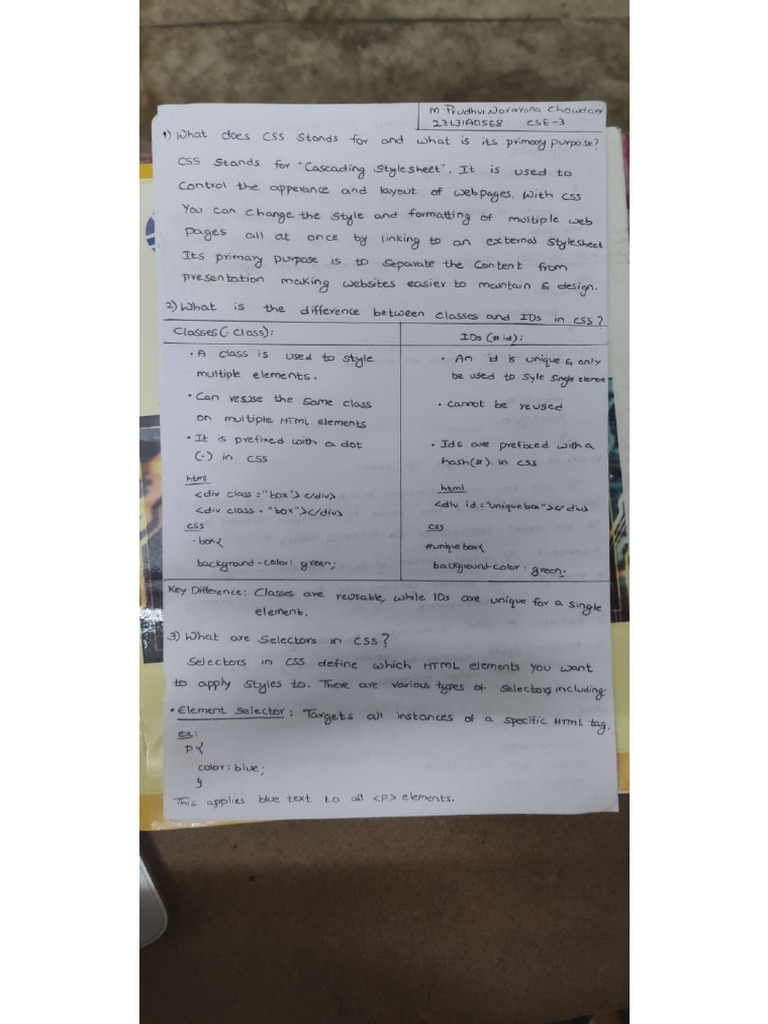 M. Prudhvi Narayana Chowdary
23L31A05E8 CSE-3
1) What does CSS Stands for and what is its primary purpose?
CSS Stands for "Cascading Stylesheet". It is used to
Control the apperance and layout of webpages. With CSS
You can change the style and formatting of multiple web
Pages all at once by linking to an external Stylesheet
Its primary purpose is to Separate the Content from
presentation making websites easier to maintain & design.
2) What is the difference between Classes and IDs in CSS?
Classes (. class):
• A class is used to style
multiple elements.
• Can reuse the same class
on multiple HTML elements
• It is prefixed with a dot
(.) in CSS
html
<div class="box"></div>
<div class = "box"></div>
CSS
.box{
background-color: green;
IDs (# id):
• An id is unique & only
be used to Syle Single element
• cannot be reused
• Ids are prefixed with a
hash(#) in CSS
html
<div id="uniquebox"></div>
CSS
#uniquebox{
background-color: green;
Key Difference: Classes are reusable, while IDs are unique for a single
element.
3) What are Selectors in CSS?
Selectors in CSS define which HTML elements you want
to apply Styles to. There are various types of Selectors including:
• Element Selector: Targets all instances of a specific HTML tag.
Ex:
P{
color: blue;
}
This applies blue text to all <P> elements.